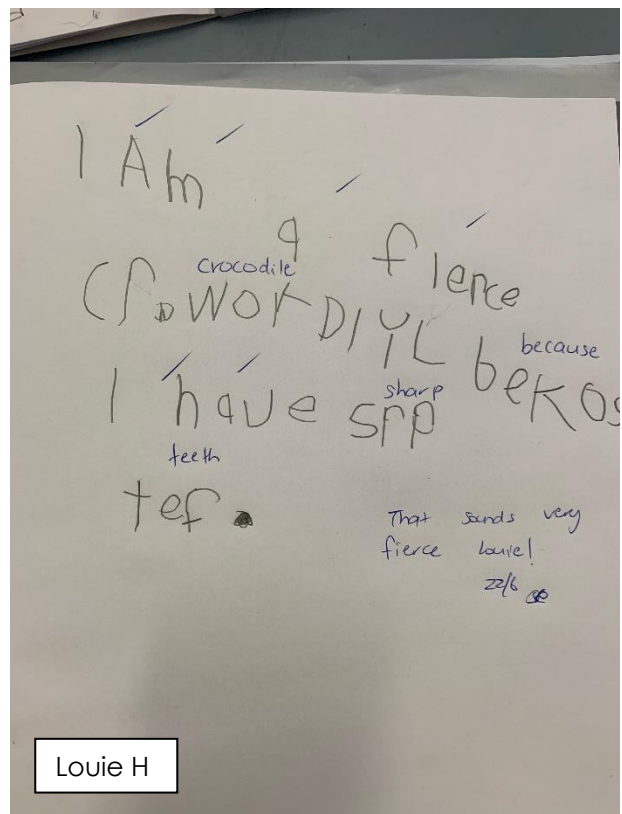 I Am
a fierce
crocodile
CroWOKDIYL
because
bekos
I have srp
sharp
teeth
tef.
That sounds very
fierce Louie!
22/6
Louie H